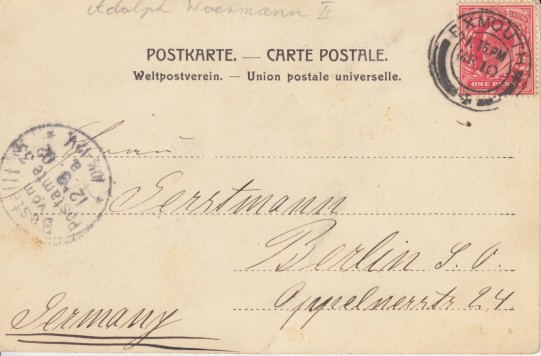 Adolph Woermann II
POSTKARTE. — CARTE POSTALE.
Weltpostverein. — Union postale universelle.
EXMOUTH
15 PM
10
ONE PENNY
Bestellt
vom
Postamte 3
12 3 02
Herrn
Gerstmann
Berlin S. O.
Oppelnerstr 24
Germany